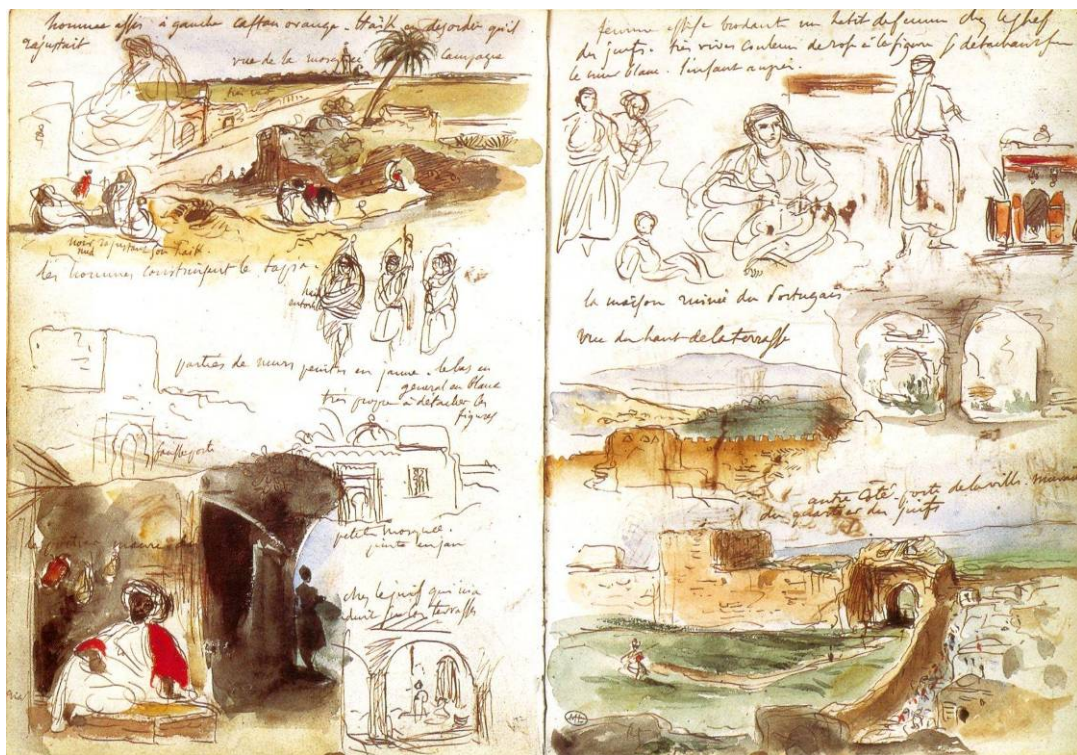 hommes assis à gauche caftan orange. Haïk en desordre qu'il
rajustait
vue de la mosquée campagne
noir rajustant son haïk
nud
des hommes construisant le tapia.
parties de murs peintes en jaune. le bas en
général en blanc
très propre à détacher les
figures
fausse porte
petite mosquée.
peinte en jau
chez le juif qui m'a
duit sur les terrasses
femme assise brodant un habit de femme chez le chef
des juifs. très vives couleurs de rose à la figure se détachant sur
le mur blanc. l'enfant auprès.
la maison ruinée du Portugais
vue du haut de la terrasse
autre côté porte de la ville
du quartier des juifs